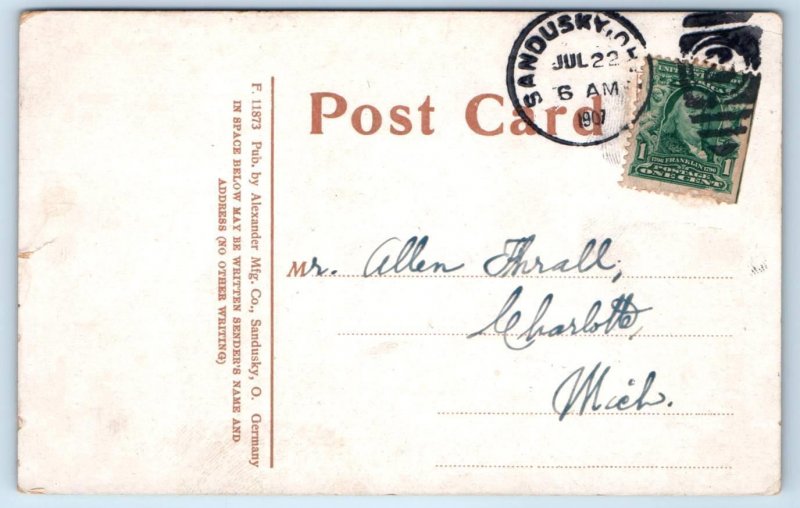 Post Card
SANDUSKY, OH
JUL 22
6 AM
1907
1 1
1706 FRANKLIN 1790
POSTAGE
ONE CENT
F. 11873 Pub. by Alexander Mfg. Co., Sandusky, O. Germany
IN SPACE BELOW MAY BE WRITTEN SENDER'S NAME AND
ADDRESS (NO OTHER WRITING)
Mr. Allen Thrall,
Charlotte,
Mich.